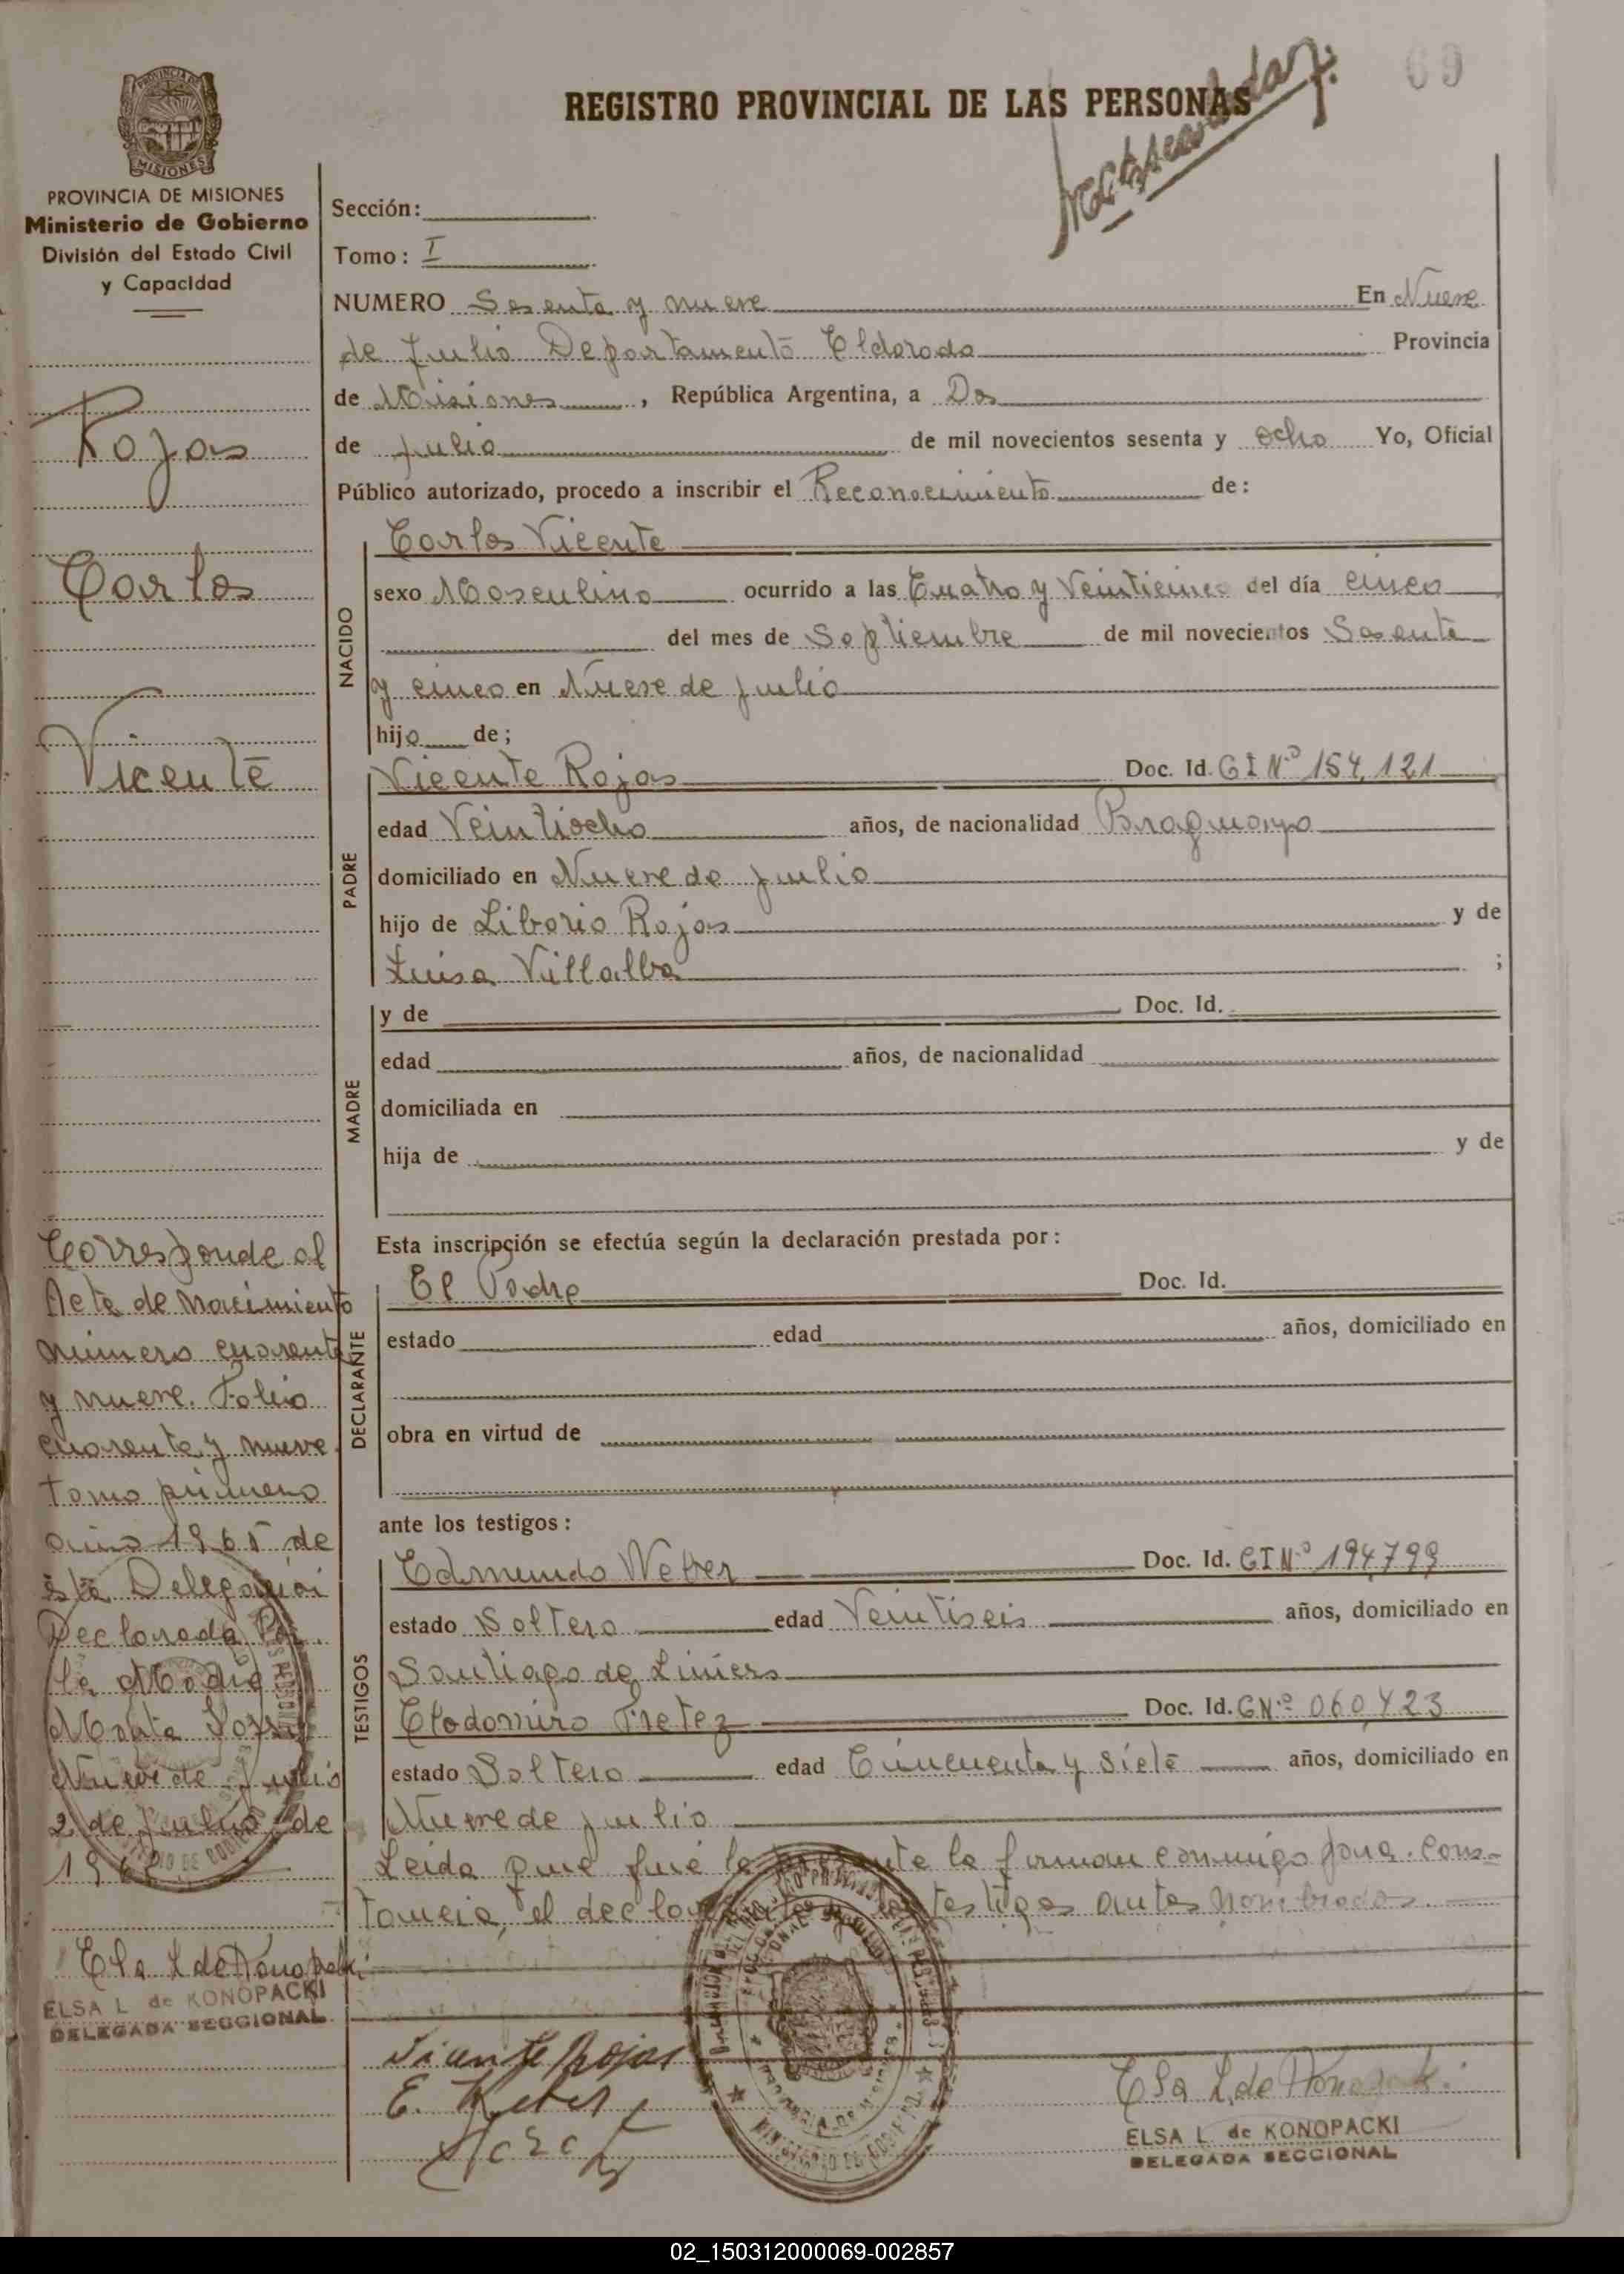 69
REGISTRO PROVINCIAL DE LAS PERSONAS
MISIONES
PROVINCIA DE MISIONES
Ministerio de Gobierno
División del Estado Civil
y Capacidad
Rojas
Carlos
Vicente
Corresponde al
Acta de nacimiento
número cuarenta
y nueve. Folio
cuarenta y nueve
tomo primero
año 1965 de
ésta Delegación
Declarada Por
la Madre
Nueve de Julio
2 de Julio de
Elsa L de Konopacki
ELSA L. de KONOPACKI
DELEGADA SECCIONAL
Sección:
Tomo: I
NUMERO Sesenta y nueve En Nueve
de Julio Departamento Eldorado Provincia
de Misiones, República Argentina, a Dos
de Julio de mil novecientos sesenta y ocho Yo, Oficial
Público autorizado, procedo a inscribir el Reconocimiento de:
NACIDO
Carlos Vicente
sexo Masculino ocurrido a las Cuatro y Veinticinco del día cinco
del mes de Septiembre de mil novecientos Sesenta
y cinco en Nueve de Julio
hijo de;
PADRE
Vicente Rojas Doc. Id. CI Nº 154,121
edad Veintiocho años, de nacionalidad Paraguayo
domiciliado en Nueve de Julio
hijo de Liborio Rojas y de
Luisa Villalba ;
MADRE
y de Doc. Id.
edad años, de nacionalidad
domiciliada en
hija de y de
Esta inscripción se efectúa según la declaración prestada por:
DECLARANTE
El Padre Doc. Id.
estado edad años, domiciliado en
obra en virtud de
ante los testigos:
TESTIGOS
Edmundo Weber Doc. Id. CI Nº 194,799
estado Soltero edad Veintiseis años, domiciliado en
Santiago de Liniers
Clodomiro Fretez Doc. Id. CNº 060,423
estado Soltero edad Cincuenta y siete años, domiciliado en
Nueve de Julio
Leida que fué la presente la firman conmigo para cons-
tancia, el declarante y los testigos antes nombrados.
Vicente Rojas
E. Weber
Elsa L. de Konopacki
ELSA L. de KONOPACKI
DELEGADA SECCIONAL
02_150312000069-002857